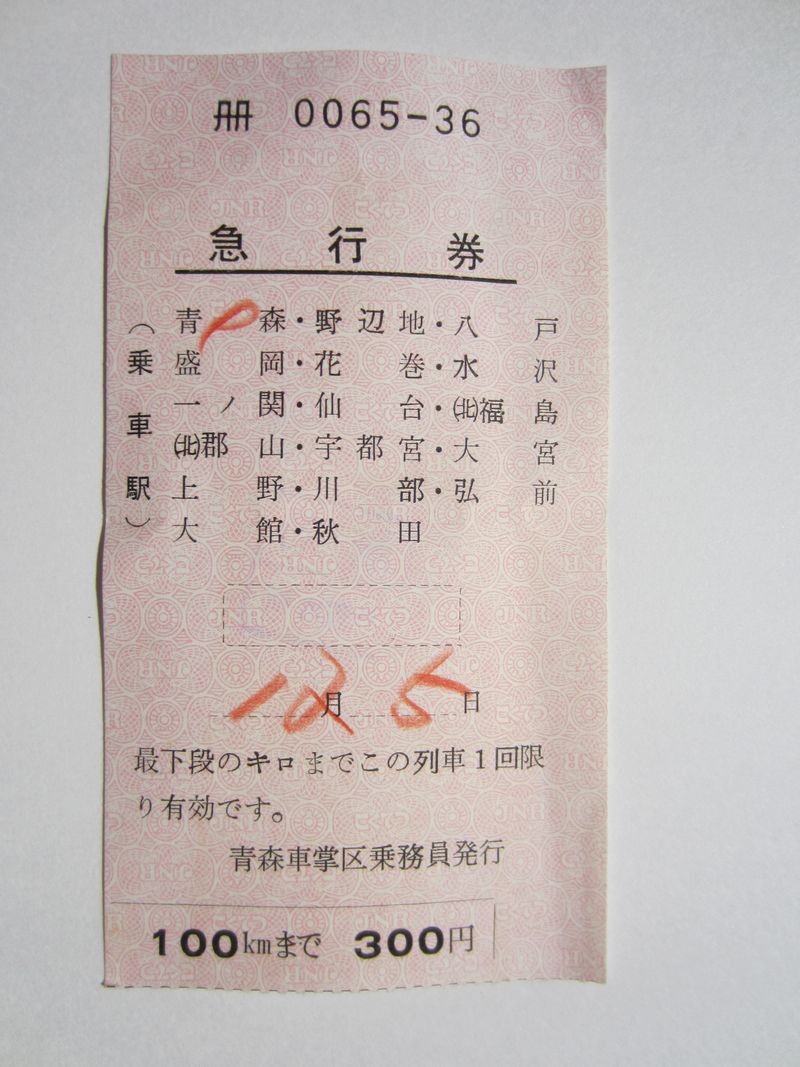 冊 0065-36
急行券
(乗車駅)
青森・野辺地・八戸
盛岡・花巻・水沢
一ノ関・仙台・㈫福島
㈫郡山・宇都宮・大宮
上野・川部・弘前
大館・秋田
12月5日
最下段のキロまでこの列車1回限
り有効です。
青森車掌区乗務員発行
100kmまで 300円